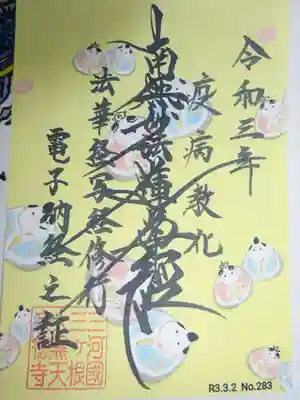 令和三年
疫病教化
南無妙法蓮華經
法華経写経修行
電子納経之証
三河國
三ヶ根
R3.3.2 No.283